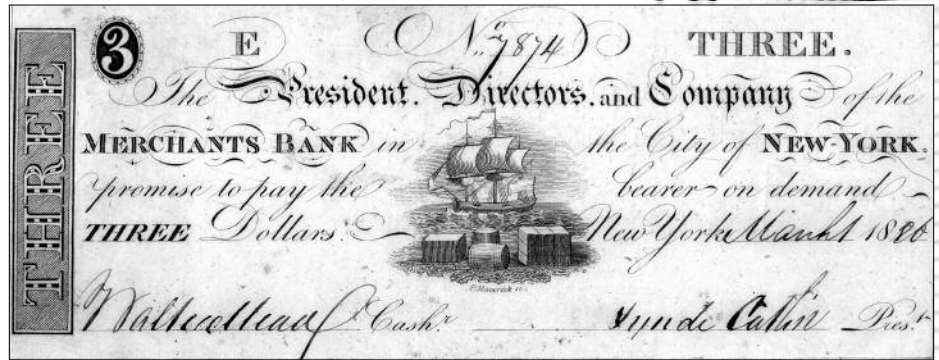 THREE
3 E No. 7874 THREE.
The President, Directors, and Company of the
MERCHANTS BANK in the City of NEW-YORK,
promise to pay the bearer on demand
THREE Dollars. New York March 1 1820
P. Maverick sc.
Walter Mead Cashr. Lynde Catlin Prest.